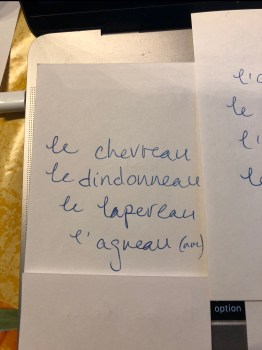 le chevreau
le dindonneau
le lapereau
l'agneau
l'
le
l'
le
option